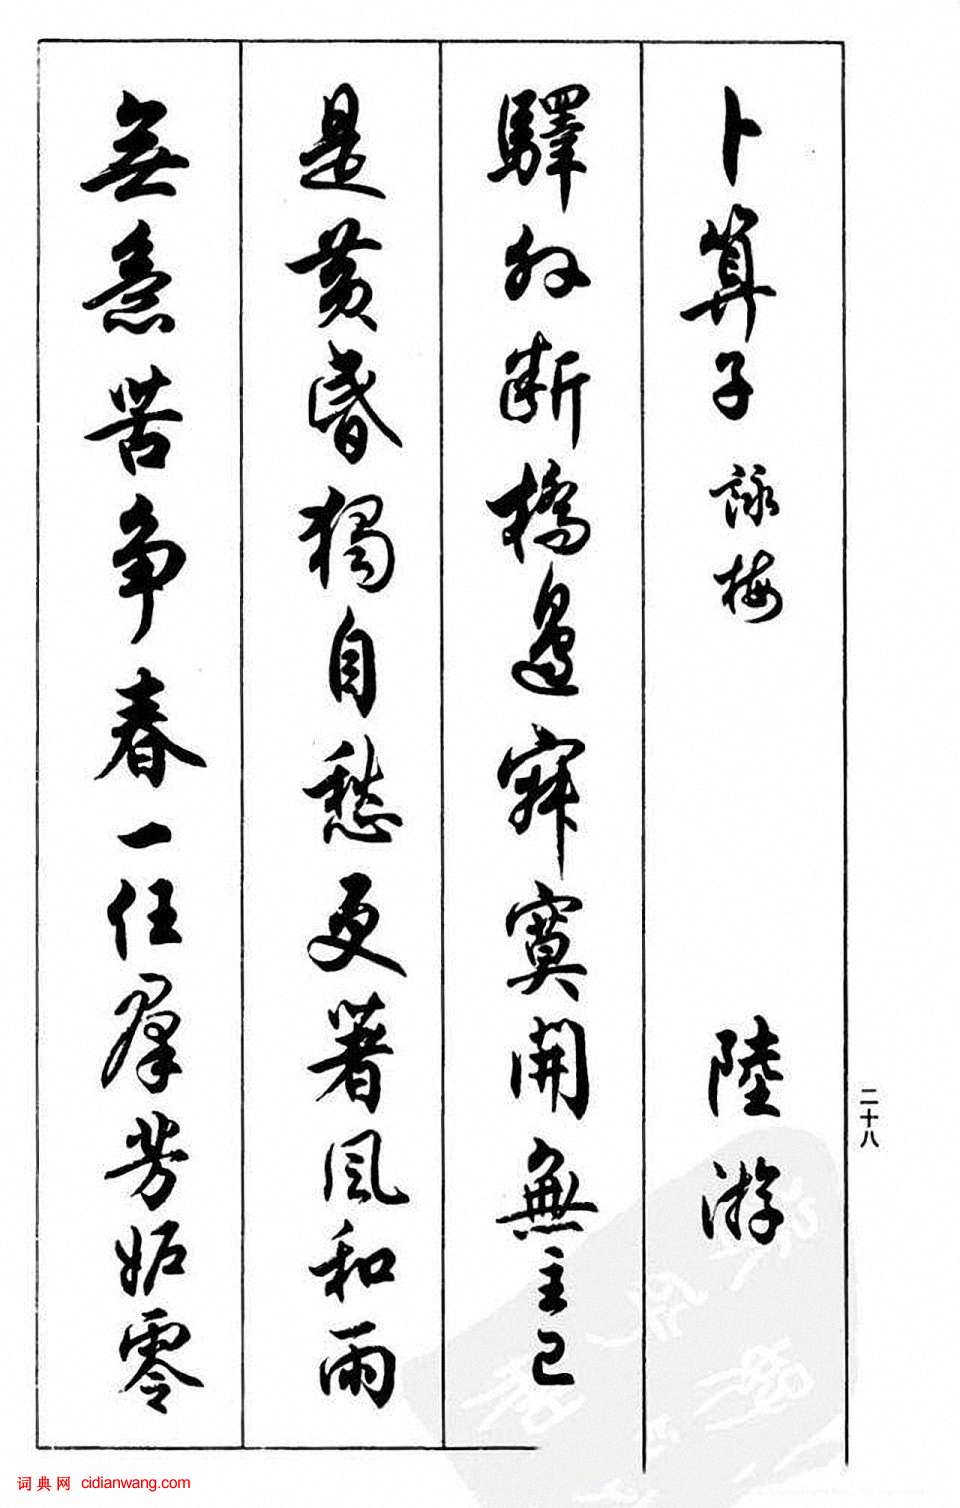 卜算子 詠梅 陸游
驛外断橋邊寂寞開無主已
是黄昏獨自愁更著風和雨
無意苦争春一任羣芳妒零
二十八
词典网 cidianwang.com